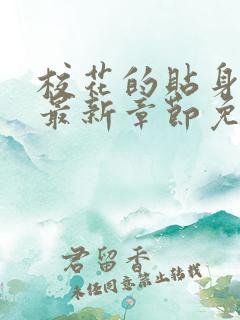 校花的贴身
最新章节免
君留香
未经同意禁止转载